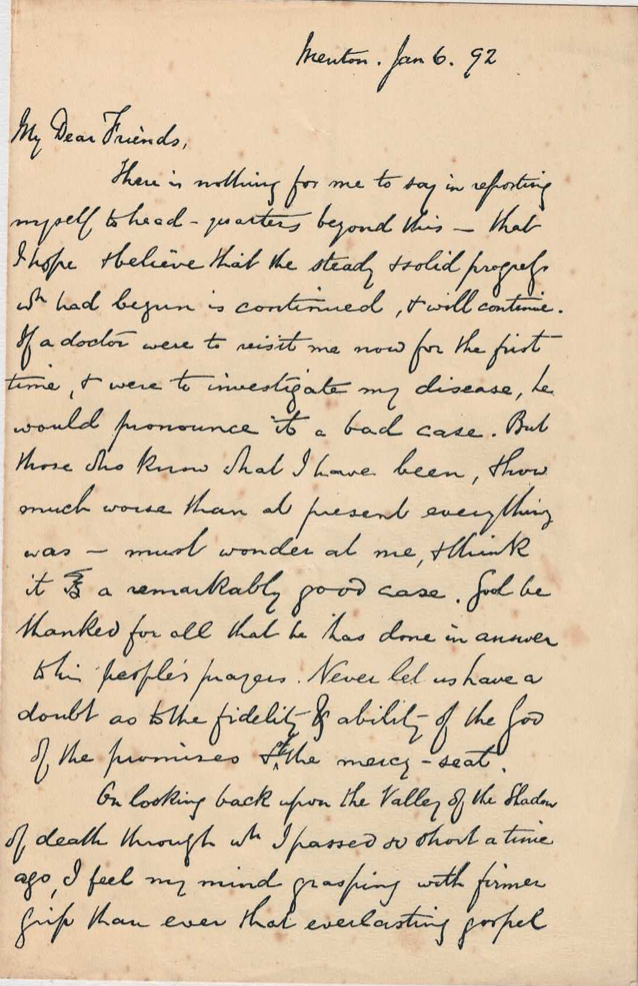 Menton. Jan 6. 92
My Dear Friends,
There is nothing for me to say in reporting
myself to head-quarters beyond this — that
I hope & believe that the steady & solid progress
wh had begun is continued, & will continue.
If a doctor were to visit me now for the first
time, & were to investigate my disease, he
would pronounce it a bad case. But
those who know what I have been, & how
much worse than at present everything
was — must wonder at me, & think
it is a remarkably good case. God be
thanked for all that he has done in answer
to his people's prayers. Never let us have a
doubt as to the fidelity & ability of the God
of the promises & of the mercy-seat.
On looking back upon the Valley of the Shadow
of death through wh I passed so short a time
ago, I feel my mind grasping with firmer
grip than ever that everlasting gospel